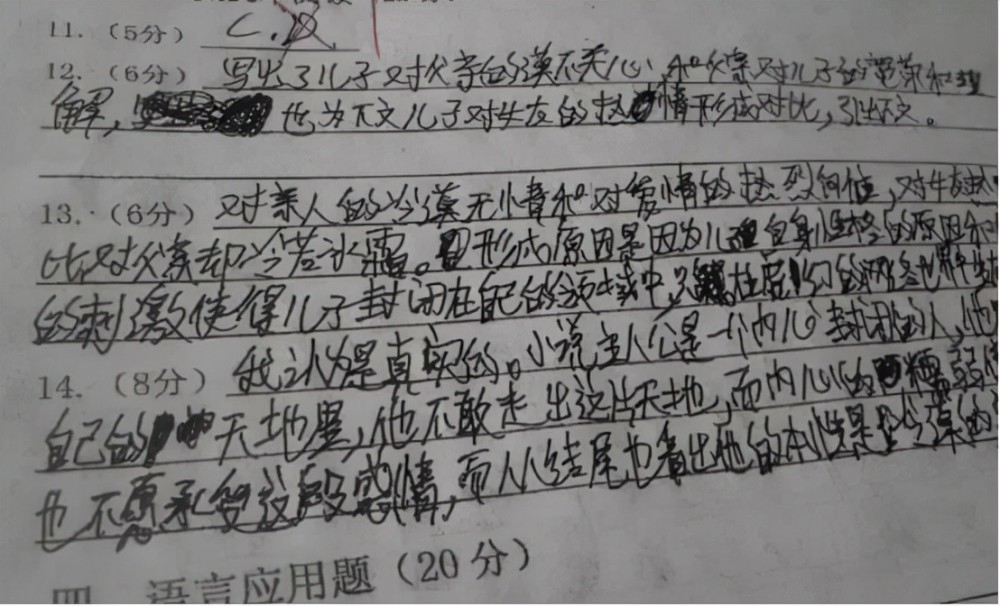 11.（5分） C.D
12.（6分） 写出了儿子对父亲的漠不关心，和父亲对儿子的宽容和理
解，也为下文儿子对女友的热情形成对比，引出下文。
13.（6分） 对亲人的冷漠无情和对爱情的热烈向往，对女友热
比对父亲却冷若冰霜。形成原因是因为儿子自身性格的原因和
的刺激使得儿子封闭在自己的领域中，在虚幻的网络世界中
14.（8分） 我认为是真实的。小说主人公是一个内心封闭的人，他
自己的天地里，他不敢走出这片天地，而内心的懦弱
也不愿承受这段感情，而从结尾也看出他的本性是冷漠的
四 语言应用题（20分）